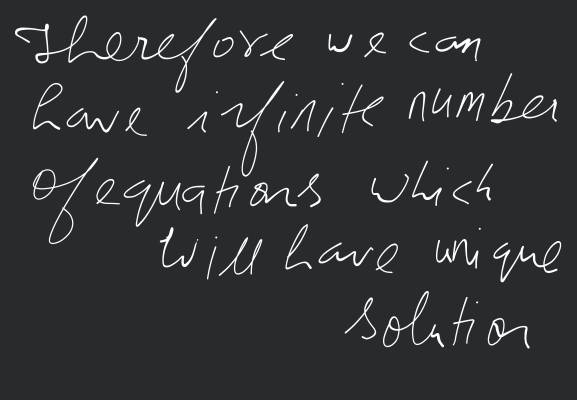 Therefore we can
have infinite number
of equations which
will have unique
solution